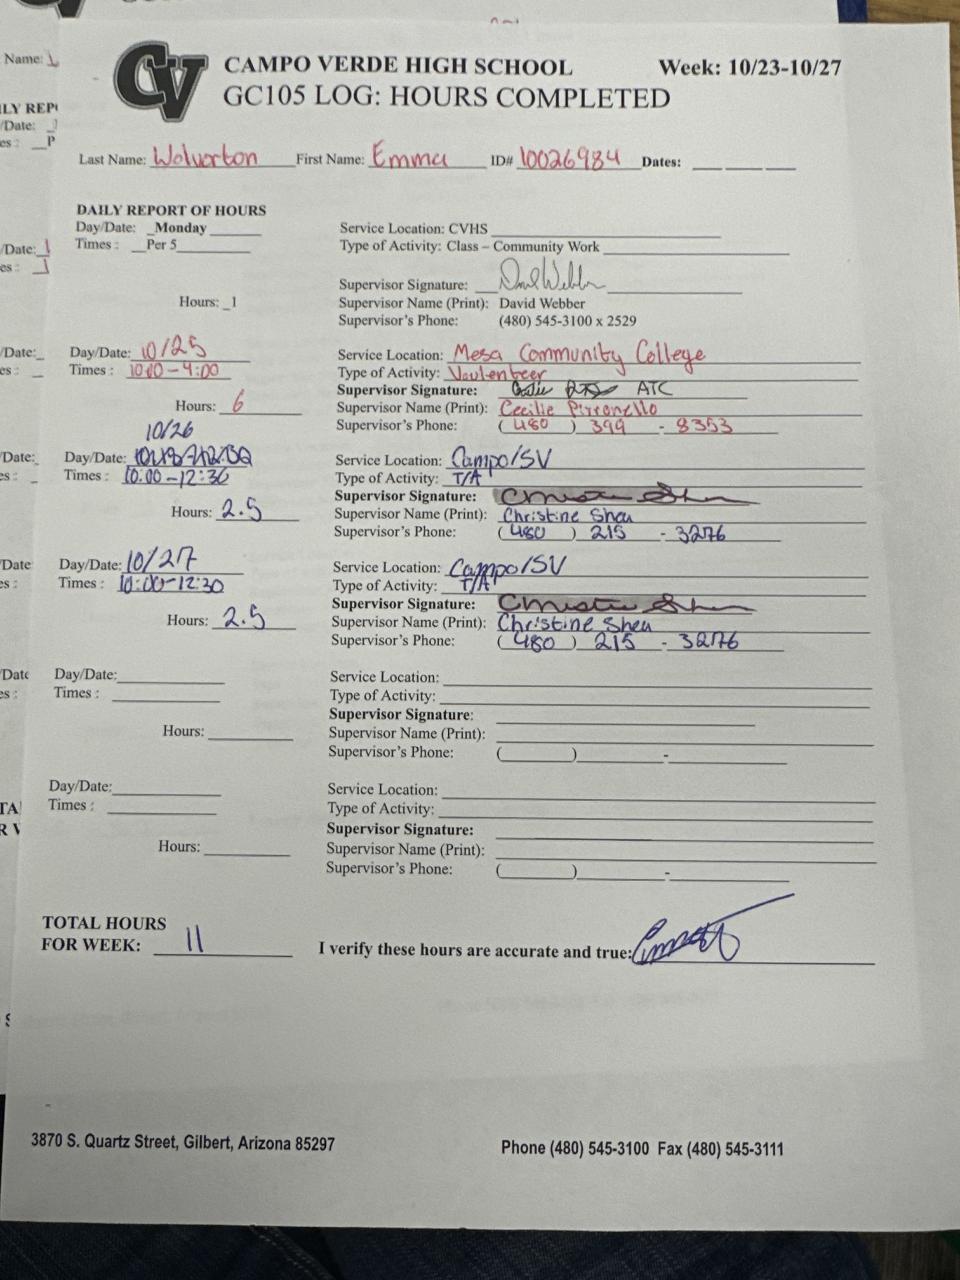 CV
CAMPO VERDE HIGH SCHOOL Week: 10/23-10/27
GC105 LOG: HOURS COMPLETED
Last Name: Wolverton First Name: Emma ID# 10026984 Dates:
DAILY REPORT OF HOURS
Day/Date: Monday Service Location: CVHS
Times : Per 5 Type of Activity: Class – Community Work
Supervisor Signature:
Hours: 1 Supervisor Name (Print): David Webber
Supervisor's Phone: (480) 545-3100 x 2529
Day/Date: 10/25 Service Location: Mesa Community College
Times : 10:00-4:00 Type of Activity: Voulenteer
Supervisor Signature: ATC
Hours: 6 Supervisor Name (Print): Cecilie Pirronello
Supervisor's Phone: (480) 399-8353
10/26
Day/Date: Service Location: Campo/SV
Times : 10:00-12:30 Type of Activity: T/A
Supervisor Signature: Christine Shea
Hours: 2.5 Supervisor Name (Print): Christine Shea
Supervisor's Phone: (480) 215-3276
Day/Date: 10/27 Service Location: Campo/SV
Times : 10:00-12:30 Type of Activity: T/A
Supervisor Signature: Christine Shea
Hours: 2.5 Supervisor Name (Print): Christine Shea
Supervisor's Phone: (480) 215-3276
Day/Date: Service Location:
Times : Type of Activity:
Supervisor Signature:
Hours: Supervisor Name (Print):
Supervisor's Phone: ( ) -
Day/Date: Service Location:
Times : Type of Activity:
Supervisor Signature:
Hours: Supervisor Name (Print):
Supervisor's Phone: ( ) -
TOTAL HOURS
FOR WEEK: 11 I verify these hours are accurate and true:
3870 S. Quartz Street, Gilbert, Arizona 85297 Phone (480) 545-3100 Fax (480) 545-3111